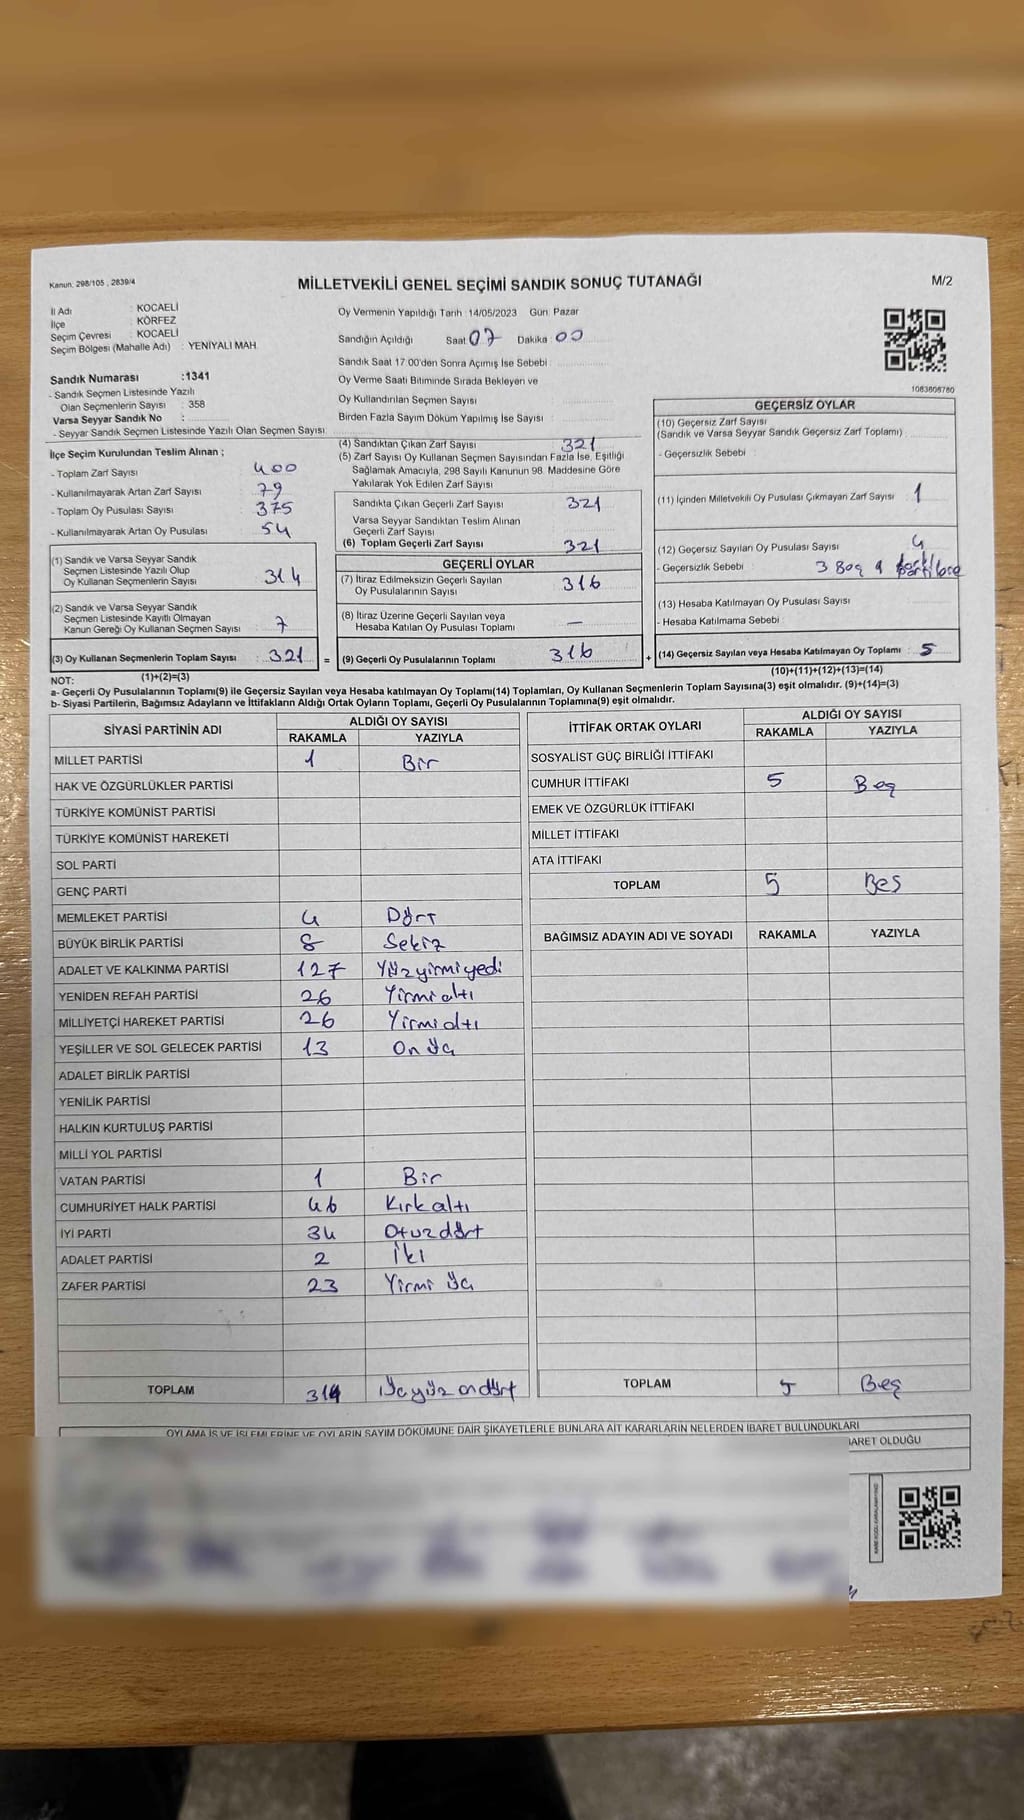 Kanun: 298/105 , 2839/4
MİLLETVEKİLİ GENEL SEÇİMİ SANDIK SONUÇ TUTANAĞI
M/2
İl Adı : KOCAELİ
İlçe : KÖRFEZ
Seçim Çevresi : KOCAELİ
Seçim Bölgesi (Mahalle Adı) : YENİYALI MAH.
Sandık Numarası :1341
- Sandık Seçmen Listesinde Yazılı
Olan Seçmenlerin Sayısı : 358
Varsa Seyyar Sandık No :
- Seyyar Sandık Seçmen Listesinde Yazılı Olan Seçmen Sayısı:
Oy Vermenin Yapıldığı Tarih :14/05/2023 Gün: Pazar
Sandığın Açıldığı Saat 07 Dakika 00
Sandık Saat 17:00'den Sonra Açımış İse Sebebi
Oy Verme Saati Bitiminde Sırada Bekleyen ve
Oy Kullandırılan Seçmen Sayısı
Birden Fazla Sayım Döküm Yapılmış İse Sayısı
1083806760
İlçe Seçim Kurulundan Teslim Alınan ;
- Toplam Zarf Sayısı 400
- Kullanılmayarak Artan Zarf Sayısı 79
- Toplam Oy Pusulası Sayısı 375
- Kullanılmayarak Artan Oy Pusulası 54
(1) Sandık ve Varsa Seyyar Sandık
Seçmen Listesinde Yazılı Olup
Oy Kullanan Seçmenlerin Sayısı : 314
(2) Sandık ve Varsa Seyyar Sandık
Seçmen Listesinde Kayıtlı Olmayan
Kanun Gereği Oy Kullanan Seçmen Sayısı : 7
(3) Oy Kullanan Seçmenlerin Toplam Sayısı : 321 =
(1)+(2)=(3)
(4) Sandıktan Çıkan Zarf Sayısı 321
(5) Zarf Sayısı Oy Kullanan Seçmen Sayısından Fazla İse, Eşitliği
Sağlamak Amacıyla, 298 Sayılı Kanunun 98. Maddesine Göre
Yakılarak Yok Edilen Zarf Sayısı
Sandıkta Çıkan Geçerli Zarf Sayısı 321
Varsa Seyyar Sandıktan Teslim Alınan
Geçerli Zarf Sayısı
(6) Toplam Geçerli Zarf Sayısı 321
GEÇERLİ OYLAR
(7) İtiraz Edilmeksizin Geçerli Sayılan
Oy Pusulalarının Sayısı 316
(8) İtiraz Üzerine Geçerli Sayılan veya
Hesaba Katılan Oy Pusulası Toplamı —
(9) Geçerli Oy Pusulalarının Toplamı 316 +
GEÇERSİZ OYLAR
(10) Geçersiz Zarf Sayısı
(Sandık ve Varsa Seyyar Sandık Geçersiz Zarf Toplamı)
- Geçersizlik Sebebi
(11) İçinden Milletvekili Oy Pusulası Çıkmayan Zarf Sayısı : 1
(12) Geçersiz Sayılan Oy Pusulası Sayısı 4
- Geçersizlik Sebebi : 3 Boş
(13) Hesaba Katılmayan Oy Pusulası Sayısı
- Hesaba Katılmama Sebebi
(14) Geçersiz Sayılan veya Hesaba Katılmayan Oy Toplamı : 5
(10)+(11)+(12)+(13)=(14)
NOT:
a- Geçerli Oy Pusulalarının Toplamı(9) ile Geçersiz Sayılan veya Hesaba katılmayan Oy Toplamı(14) Toplamları, Oy Kullanan Seçmenlerin Toplam Sayısına(3) eşit olmalıdır. (9)+(14)=(3)
b- Siyasi Partilerin, Bağımsız Adayların ve İttifakların Aldığı Ortak Oyların Toplamı, Geçerli Oy Pusulalarının Toplamına(9) eşit olmalıdır.
SİYASİ PARTİNİN ADI ALDIĞI OY SAYISI
RAKAMLA YAZIYLA
MİLLET PARTİSİ 1 Bir
HAK VE ÖZGÜRLÜKLER PARTİSİ
TÜRKİYE KOMÜNİST PARTİSİ
TÜRKİYE KOMÜNİST HAREKETİ
SOL PARTİ
GENÇ PARTİ
MEMLEKET PARTİSİ 4 Dört
BÜYÜK BİRLİK PARTİSİ 8 Sekiz
ADALET VE KALKINMA PARTİSİ 127 Yüzyirmiyedi
YENİDEN REFAH PARTİSİ 26 Yirmi altı
MİLLİYETÇİ HAREKET PARTİSİ 26 Yirmi altı
YEŞİLLER VE SOL GELECEK PARTİSİ 13 On üç
ADALET BİRLİK PARTİSİ
YENİLİK PARTİSİ
HALKIN KURTULUŞ PARTİSİ
MİLLİ YOL PARTİSİ
VATAN PARTİSİ 1 Bir
CUMHURİYET HALK PARTİSİ 46 Kırk altı
İYİ PARTİ 34 Otuz dört
ADALET PARTİSİ 2 İki
ZAFER PARTİSİ 23 Yirmi üç
TOPLAM 314 Üçyüz ondört
İTTİFAK ORTAK OYLARI ALDIĞI OY SAYISI
RAKAMLA YAZIYLA
SOSYALİST GÜÇ BİRLİĞİ İTTİFAKI
CUMHUR İTTİFAKI 5 Beş
EMEK VE ÖZGÜRLÜK İTTİFAKI
MİLLET İTTİFAKI
ATA İTTİFAKI
TOPLAM 5 Beş
BAĞIMSIZ ADAYIN ADI VE SOYADI RAKAMLA YAZIYLA
TOPLAM 5 Beş
OYLAMA İŞ VE İŞLEMLERİNE VE OYLARIN SAYIM DÖKÜMÜNE DAİR ŞİKAYETLERLE BUNLARA AİT KARARLARIN NELERDEN İBARET BULUNDUKLARI
İBARET OLDUĞU